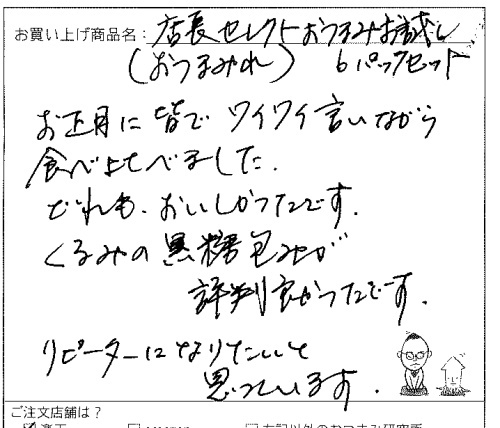 お買い上げ商品名：店長セレクトおつまみお試し
(おつまみれ) 6パックセット
お正月に皆でワイワイ言いながら
食べ比べました.
どれも、おいしかったです.
くるみの黒糖包みが
評判良かったです.
リピーターになりたいと
思っています.
ご注文店舗は？